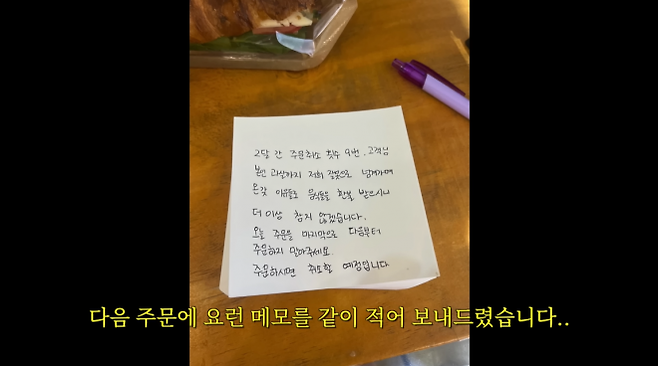 2달 간 주문취소 횟수 9번, 고객님
본인 과실까지 저희 잘못으로 넘겨가며
온갖 이유들로 음식들을 환불 받으시니
더 이상 참지 않겠습니다.
오늘 주문을 마지막으로 다음부터
주문하지 말아주세요
주문하시면 취소할 예정입니다
다음 주문에 요런 메모를 같이 적어 보내드렸습니다..